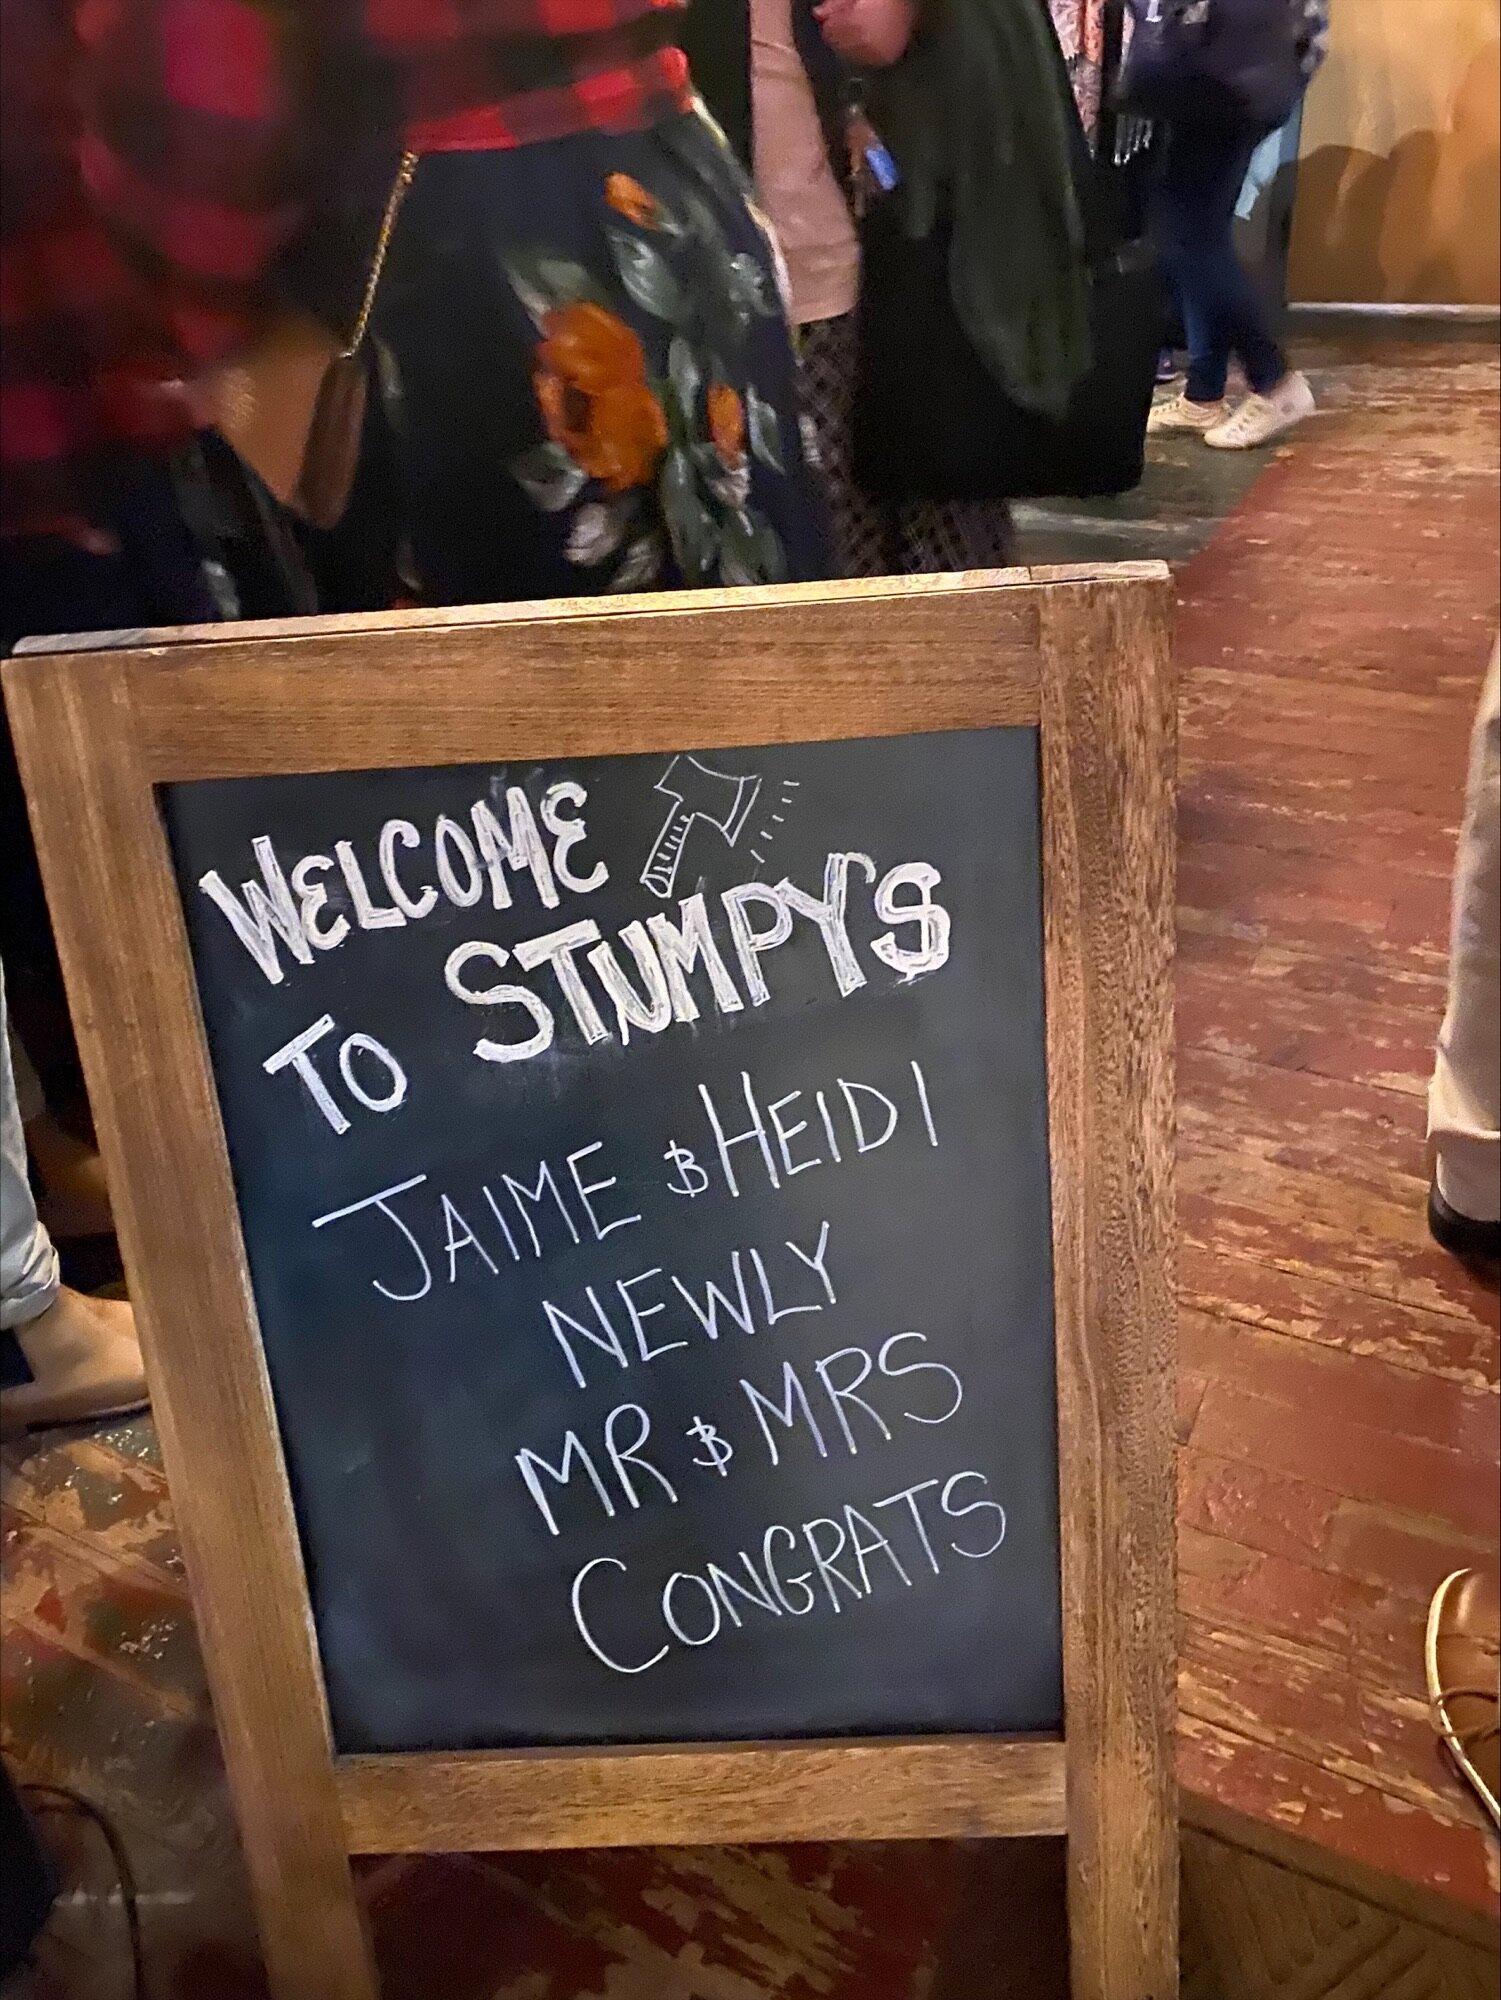 WELCOME
TO STUMPY'S
JAIME & HEIDI
NEWLY
MR & MRS
CONGRATS